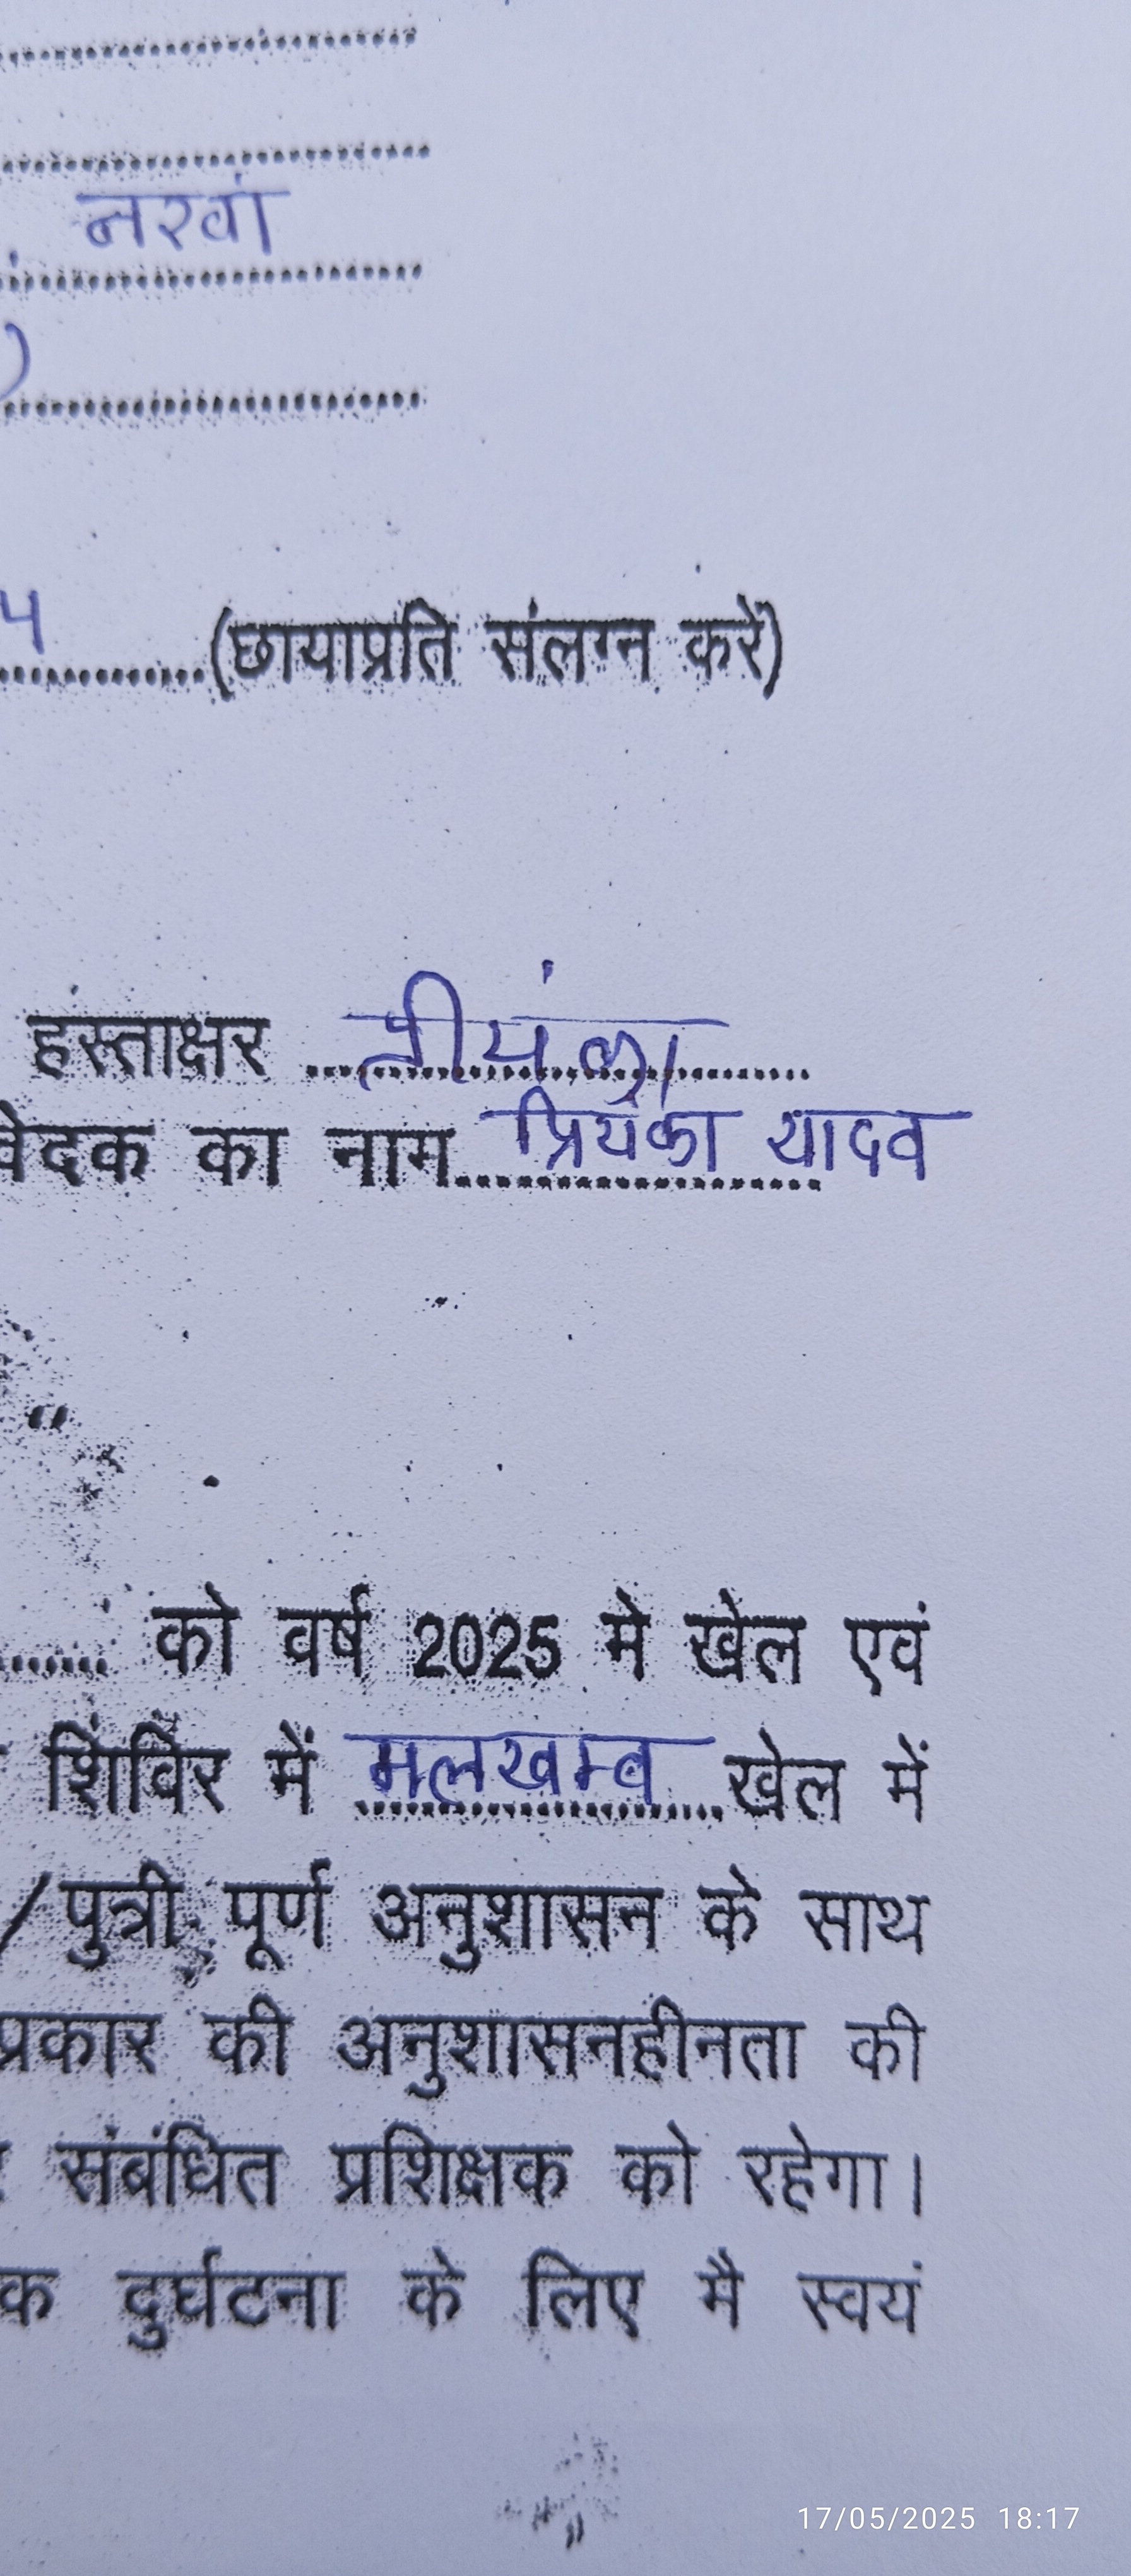 नरवां
)
4 (छायाप्रति संलग्न करें)
हस्ताक्षर प्रीयंका
वेदक का नाम प्रियंका यादव
को वर्ष 2025 मे खेल एवं
शिविर में मलखम्ब खेल में
/पुत्री पूर्ण अनुशासन के साथ
प्रकार की अनुशासनहीनता की
संबंधित प्रशिक्षक को रहेगा।
क दुर्घटना के लिए मै स्वयं
17/05/2025 18:17